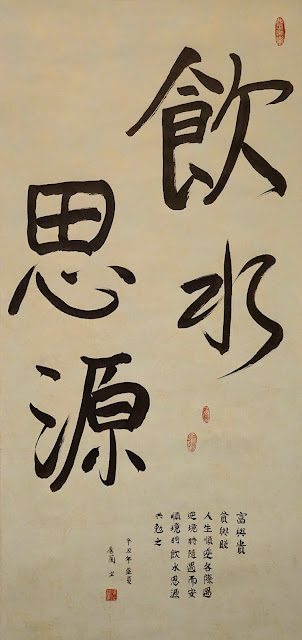 飲水
思源
富與貴
貧與賤
人生順逆各際遇
逆境時隨遇而安
順境時飲水思源
共勉之
辛丑年夏